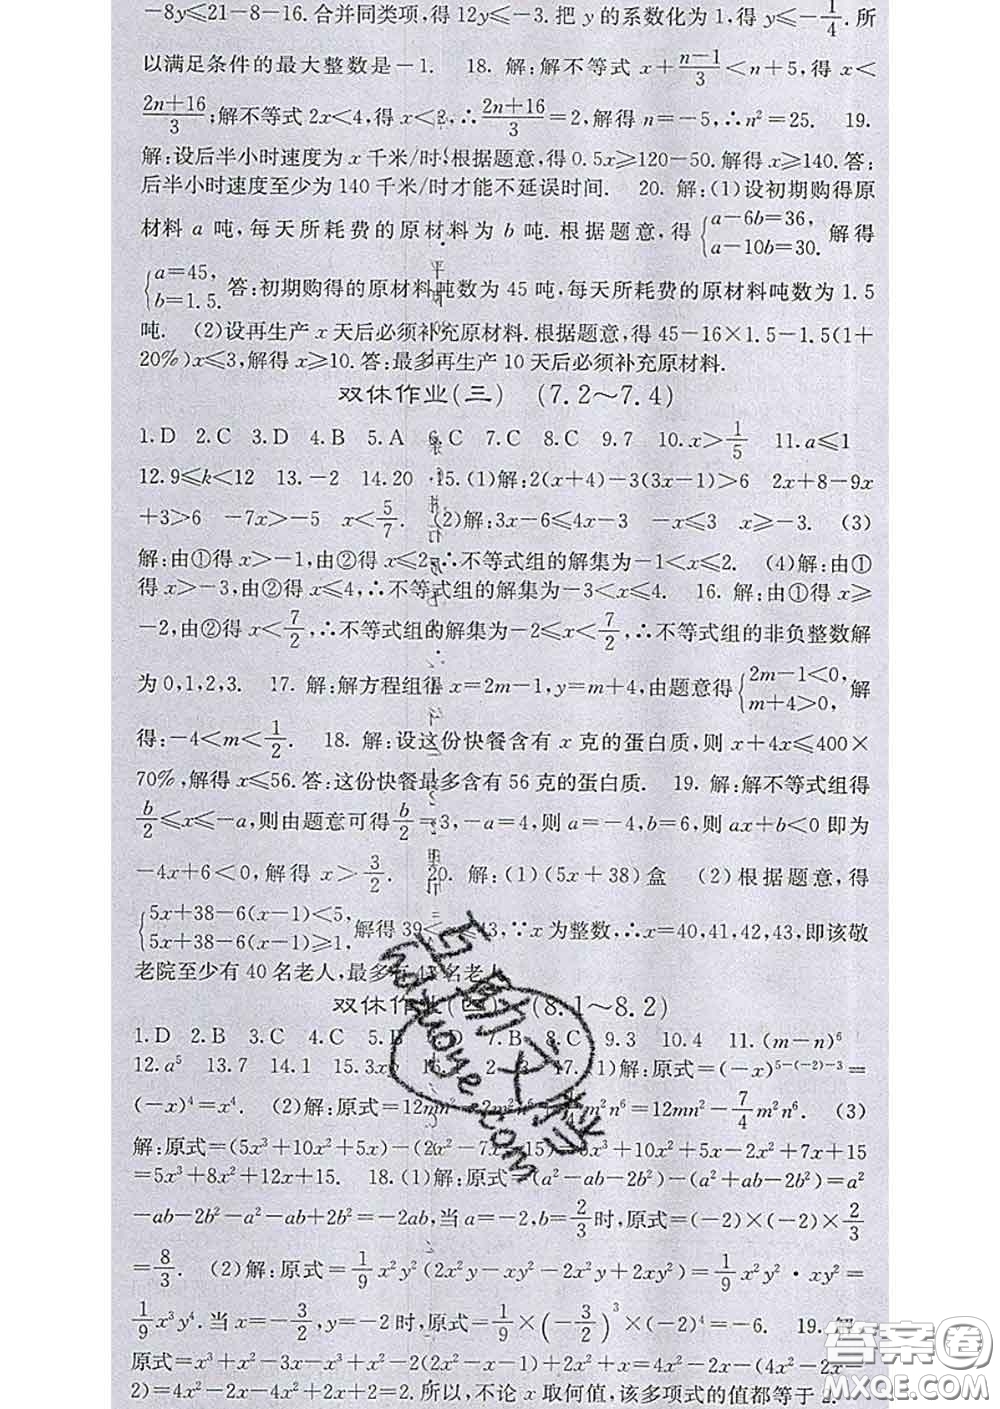 -8y≤21-8-16.合并同类项,得12y≤-3.把y的系数化为1,得y≤-1/4.所
以满足条件的最大整数是-1. 18. 解:解不等式x+(n-1)/3<n+5,得x<
(2n+16)/3;解不等式2x<4,得x<2,∴(2n+16)/3=2,解得n=-5,∴n²=25. 19.
解:设后半小时速度为x千米/时.根据题意,得0.5x≥120-50.解得x≥140.答:
后半小时速度至少为140千米/时才能不延误时间. 20. 解:(1)设初期购得原
材料a吨,每天所耗费的原材料为b吨.根据题意,得{a-6b=36, a-10b=30. 解得
{a=45, b=1.5. 答:初期购得的原材料吨数为45吨,每天所耗费的原材料吨数为1.5
吨. (2)设再生产x天后必须补充原材料.根据题意,得45-16×1.5-1.5(1+
20%)x≤3,解得x≥10.答:最多再生产10天后必须补充原材料.
双休作业(三) (7.2~7.4)
1.D 2.C 3.D 4.B 5.A 6.C 7.C 8.C 9.7 10.x>1/5 11.a≤1
12.9≤k<12 13.-2 14.20 15.(1)解:2(x+4)-3(3x-1)>6 2x+8-9x
+3>6 -7x>-5 x<5/7. (2)解:3x-6≤4x-3 -x≤3 x≥-3. (3)
解:由①得x>-1,由②得x≤2,∴不等式组的解集为-1<x≤2. (4)解:由①
得x>-3,由②得x≤4,∴不等式组的解集为-3<x≤4. 16. 解:由①得x≥
-2,由②得x<7/2,∴不等式组的解集为-2≤x<7/2,∴不等式组的非负整数解
为0,1,2,3. 17. 解:解方程组得x=2m-1,y=m+4,由题意得{2m-1<0, m+4>0, 解
得:-4<m<1/2. 18. 解:设这份快餐含有x克的蛋白质,则x+4x≤400×
70%,解得x≤56.答:这份快餐最多含有56克的蛋白质. 19. 解:解不等式组得
b/2≤x≤-a,则由题意可得b/2=3,-a=4,则a=-4,b=6,则ax+b<0即为
-4x+6<0,解得x>3/2. 20. 解:(1)(5x+38)盒 (2)根据题意,得
{5x+38-6(x-1)<5, 5x+38-6(x-1)≥1, 解得39<x≤43,∵x为整数,∴x=40,41,42,43,即该敬
老院至少有40名老人,最多有43名老人.
双休作业(四) (8.1~8.2)
1.D 2.B 3.C 4.C 5.B D 7.B 8.C 9.3 10.4 11.(m-n)⁶
12.a⁵ 13.7 14.1 15.3x 2 17.(1)解:原式=(-x)⁵⁻⁽⁻²⁾⁻³=
(-x)⁴=x⁴. (2)解:原式=12mn²-2m²n⁶ m²n⁶=12mn²-7/4m²n⁶. (3)
解:原式=(5x³+10x²+5x)-(2x²-7x-15)=5x³+10x²+5x-2x²+7x+15
=5x³+8x²+12x+15. 18.(1)解:原式=(a²-ab-2b²)-(a²+ab-2b²)=a²
-ab-2b²-a²-ab+2b²=-2ab,当a=-2,b=2/3时,原式=(-2)×(-2)×2/3
=8/3. (2)解:原式=1/9x²y²(2x²y-xy²-2x²y+2xy²)=1/9x²y²·xy²=
1/9x³y⁴.当x=-3/2,y=-2时,原式=1/9×(-3/2)³×(-2)⁴=-6. 19. 解:
原式=x³+x²-3x-x³-2(2x²-x-1)+x²+x=4x²-2x-(4x²-2x-
2)=4x²-2x-4x²+2x+2=2.所以,不论x取何值,该多项式的值都等于2.
互助文档
hdzuoye.com
答案圈
MXQE.COM